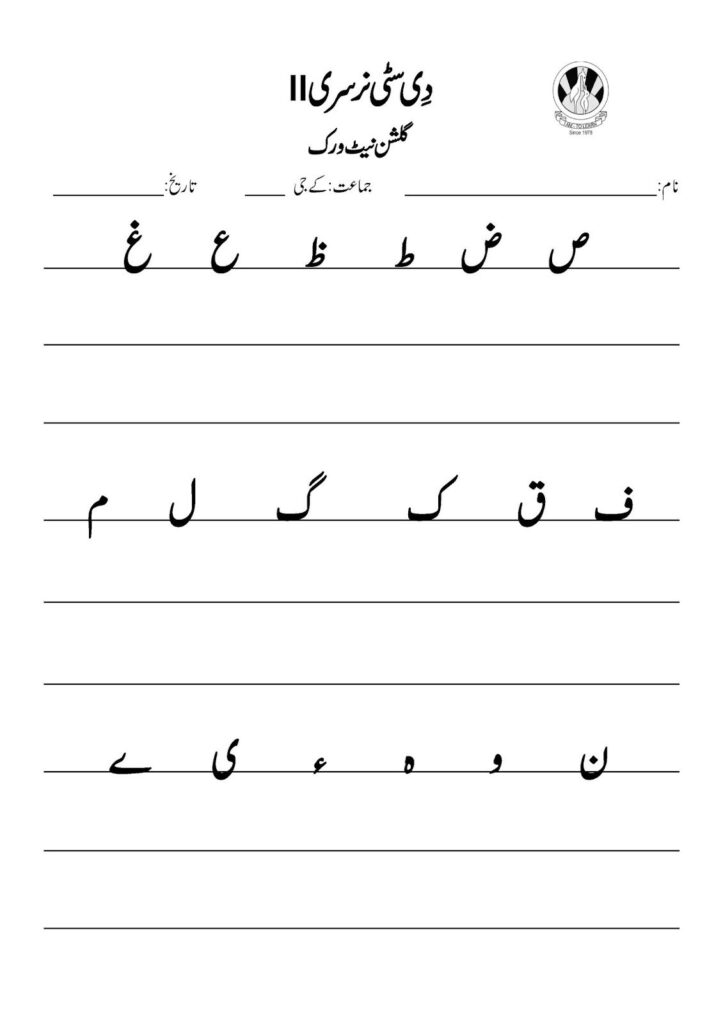 دِی سٹی نرسری II
گلشن نیٹ ورک
I AM - TO LEARN
Since 1978
نام:__________ جماعت: کے جی ____ تاریخ:__________
ص ض ط ظ ع غ
ف ق ک گ ل م
ن و ہ ء ی ے